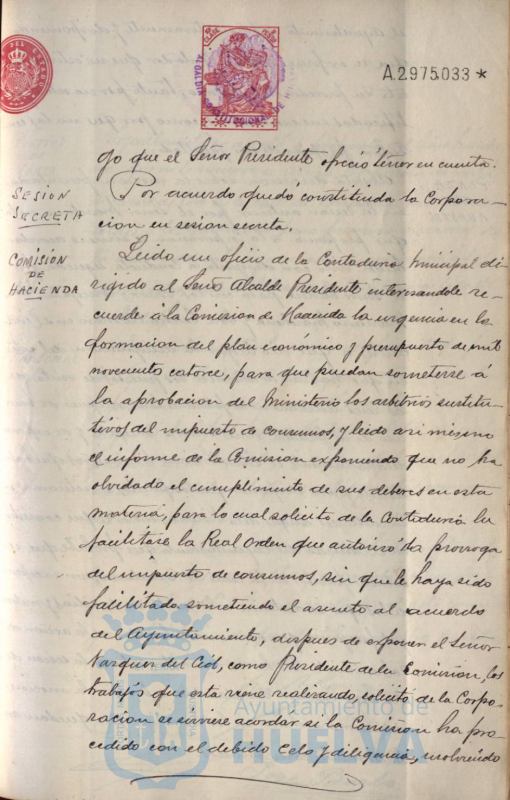 A.2975033 *
go que el Señor Presidente ofreció tener en cuenta.
SESION
SECRETA
Por acuerdo quedó constituida la Corpora-
cion en sesion secreta.
COMISIÓN
DE
HACIENDA
Leido un oficio de la Contaduria municipal di-
rigido al Señor Alcalde Presidente interesandole re-
cuerde á la Comision de Hacienda la urgencia en la
formacion del plan económico y presupuesto de mil
novecientos catorce, para que puedan someterse á
la aprobacion del Ministerio los arbitrios sustitu-
tivos del impuesto de consumos, y leido asi mismo
el informe de la Comision exponiendo que no ha
olvidado el cumplimiento de sus deberes en esta
materia, para lo cual solicitó de la Contaduria le
facilitase la Real Orden que autorizó la prorroga
del impuesto de consumos, sin que le haya sido
facilitada, sometiendo el asunto al acuerdo
del Ayuntamiento, despues de exponer el Señor
Vazquez del Cid, como Presidente de la Comision, los
trabajos que esta viene realizando, solicitó de la Corpo-
racion se sirviere acordar si la Comision ha pro-
cedido con el debido celo y diligencia, resolviendo
Ayuntamiento de
HUELVA